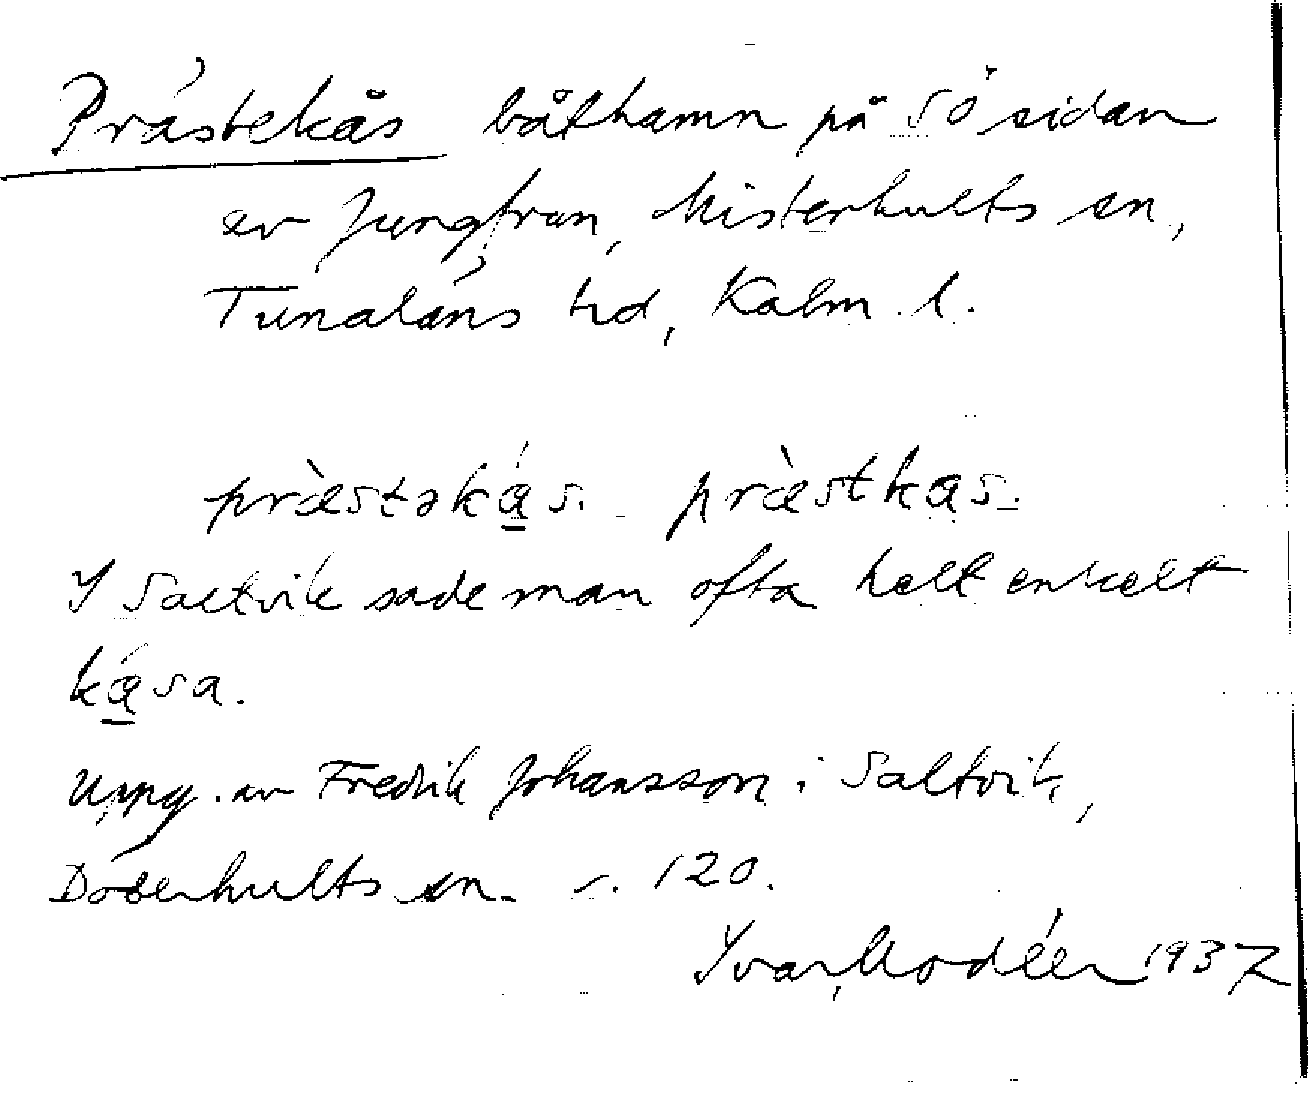 Prästekås båthamn på SÖ sidan
av Jungfrun, Misterhults sn,
Tunaläns hd, Kalm. l.
præ̀stəká̱s. præ̀stkas.
I Saltvik sade man ofta helt enkelt
ká̱sa.
Uppg. av Fredrik Johansson i Saltvik,
Döderhults sn. s. 120.
Ivar Modéer 1937